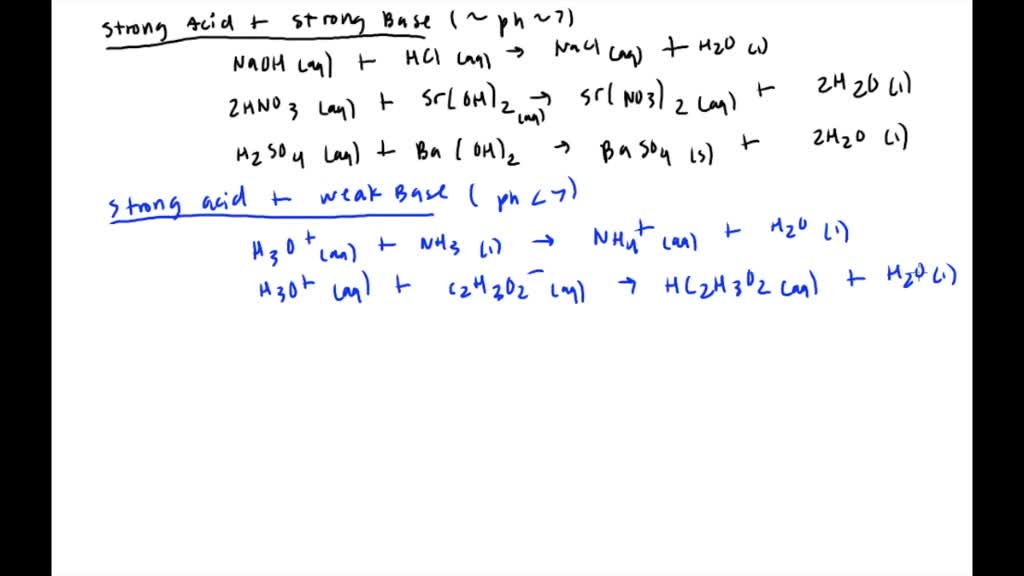 strong Acid + strong Base (~ ph ~7)
NaOH (aq) + HCl (aq) → NaCl (aq) + H2O (l)
2HNO3 (aq) + Sr(OH)2 (aq) → Sr(NO3)2 (aq) + 2H2O (l)
H2SO4 (aq) + Ba(OH)2 → BaSO4 (s) + 2H2O (l)
strong acid + weak Base ( ph <7)
H3O+ (aq) + NH3 (l) → NH4+ (aq) + H2O (l)
H3O+ (aq) + C2H3O2- (aq) → HC2H3O2 (aq) + H2O (l)